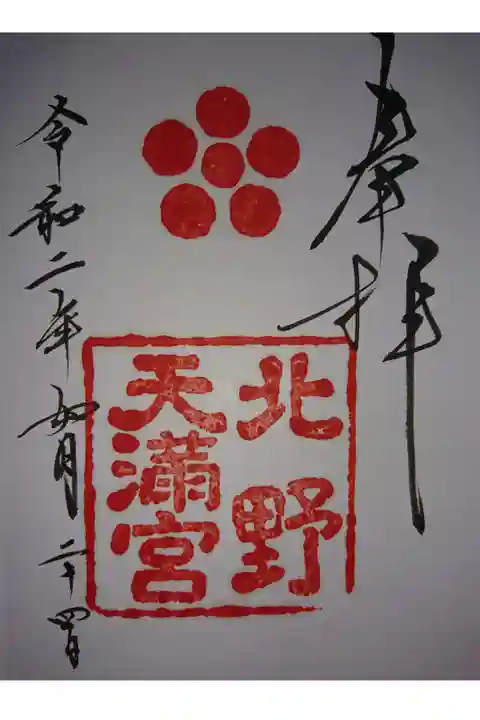 奉拝
北野
天満宮
令和二年如月二十四日